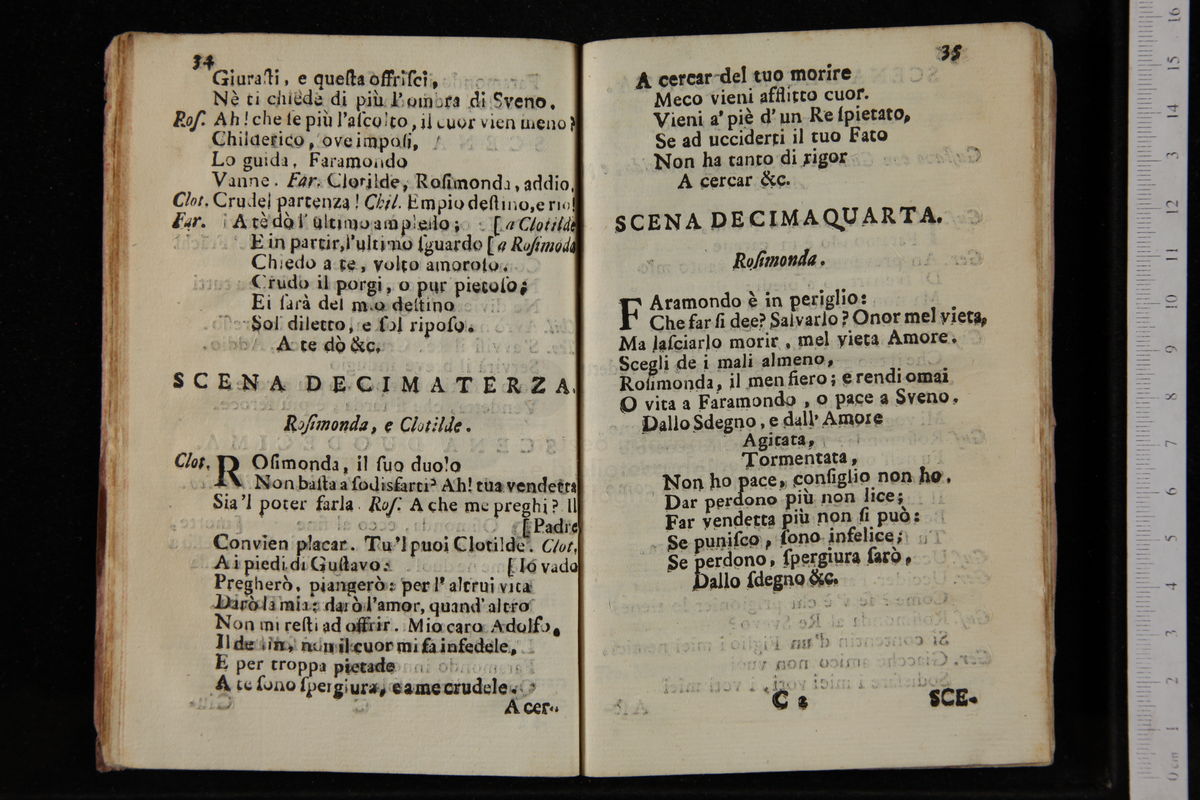 34
Giuraſti, e queſta offriſci,
Nè ti chiede di più l'ombra di Sveno.
Roſ. Ah! che ſe più l'aſcolto, il cuor vien meno?
Childerico, ove impoſi,
Lo guida, Faramondo
Vanne. Far. Clotilde, Roſimonda, addio.
Clot. Crudel partenza! Chil. Empio deſtino, e rio!
Far. A tè dò l'ultimo ampleſſo; [a Clotilde
E in partir, l'ultimo ſguardo [a Roſimōda
Chiedo a te, volto amoroſo.
Crudo il porgi, o pur pietoſo;
Ei farà del mio deſtino
Sol diletto, e ſol ripoſo.
A te dò &c.
SCENA DECIMATERZA.
Roſimonda, e Clotilde.
Clot. ROſimonda, il ſuo duolo
Non baſta a ſodisfarti? Ah! tua vendetta
Sia 'l poter farla. Roſ. A che me preghi? Il
[Padre
Convien placar. Tu 'l puoi Clotilde. Clot.
A i piedi di Guſtavo: [Io vado
Pregherò, piangerò: per l'altrui vita
Darò la mia; darò l'amor, quand'altro
Non mi reſti ad offrir. Mio caro Adolfo,
Il deſtin, non il cuor mi fà infedele,
E per troppa pietade
A te ſono ſpergiura, e a me crudele.
A cer-
35
A cercar del tuo morire
Meco vieni afflitto cuor.
Vieni a' piè d'un Re ſpietato,
Se ad ucciderti il tuo Fato
Non ha tanto di rigor
A cercar &c.
SCENA DECIMAQUARTA.
Roſimonda.
FAramondo è in periglio:
Che far ſi dee? Salvarlo? Onor mel vieta,
Ma laſciarlo morir, mel vieta Amore.
Scegli de i mali almeno,
Roſimonda, il men fiero; e rendi omai
O vita a Faramondo, o pace a Sveno.
Dallo Sdegno, e dall' Amore
Agitata,
Tormentata,
Non ho pace, conſiglio non ho.
Dar perdono più non lice;
Far vendetta più non ſi può:
Se puniſco, ſono infelice;
Se perdono, ſpergiura ſarò,
Dallo ſdegno &c.
C 2 SCE-